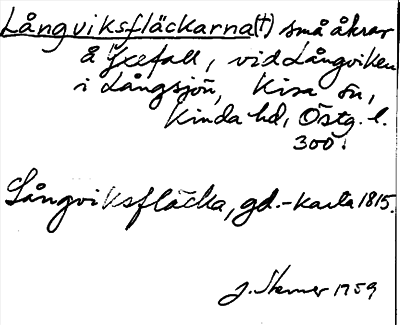 Långviksfläckarna(†) små åkrar
å Yxefall, vid Långviken
i Långsjön, Kisa sn,
Kinda hd, Östg. l.
300.
Långviksfläcka, gd.-karta 1815.
J. Sterner 1959